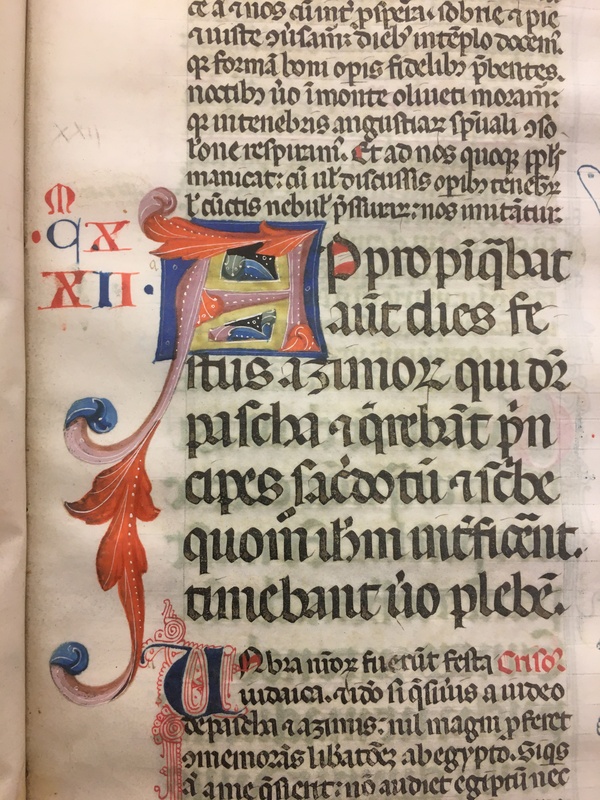 XXII
ce ⁊ a nos cū īt ꝓspera. sobrie ⁊ pie
⁊ iuste ꝯūsam̄: dieb' in tēplo docem'.
qꝫ formā boni opis fidelibꝫ p̄bentes.
noctibꝫ ūo ī monte oliueti moram̄:
qꝫ in tenebris angustiaꝝ sp̄uali ꝯso
lone respiram̄. Et ad nos quoqꝫ ppl's
manicat: cū ul' discussis opibꝫ tenebꝝ
l' cūctis nebul' p̄ssuraꝝ: nos imitātur.
M
CX
XII.
APpropiq̄bat
aūt dies fe
stus azimoꝝ qui dr̄
pascha ⁊ q̄rebāt pͥn
cipes sac̄dotū ⁊ scͥbe
quom̄ ih̄m int̄ficēnt.
timebant ūo plebē.
UMbra nr̄oꝝ fuerūt festa
iudaica. ido si q̄siuis a iudeo
de pascha ⁊ azimis: nil magni ꝓferet
ꝯmemorās lib̄atōeꝫ ab egypto. Siqͥs
à a me q̄sierit: nō audiet egiptū nec